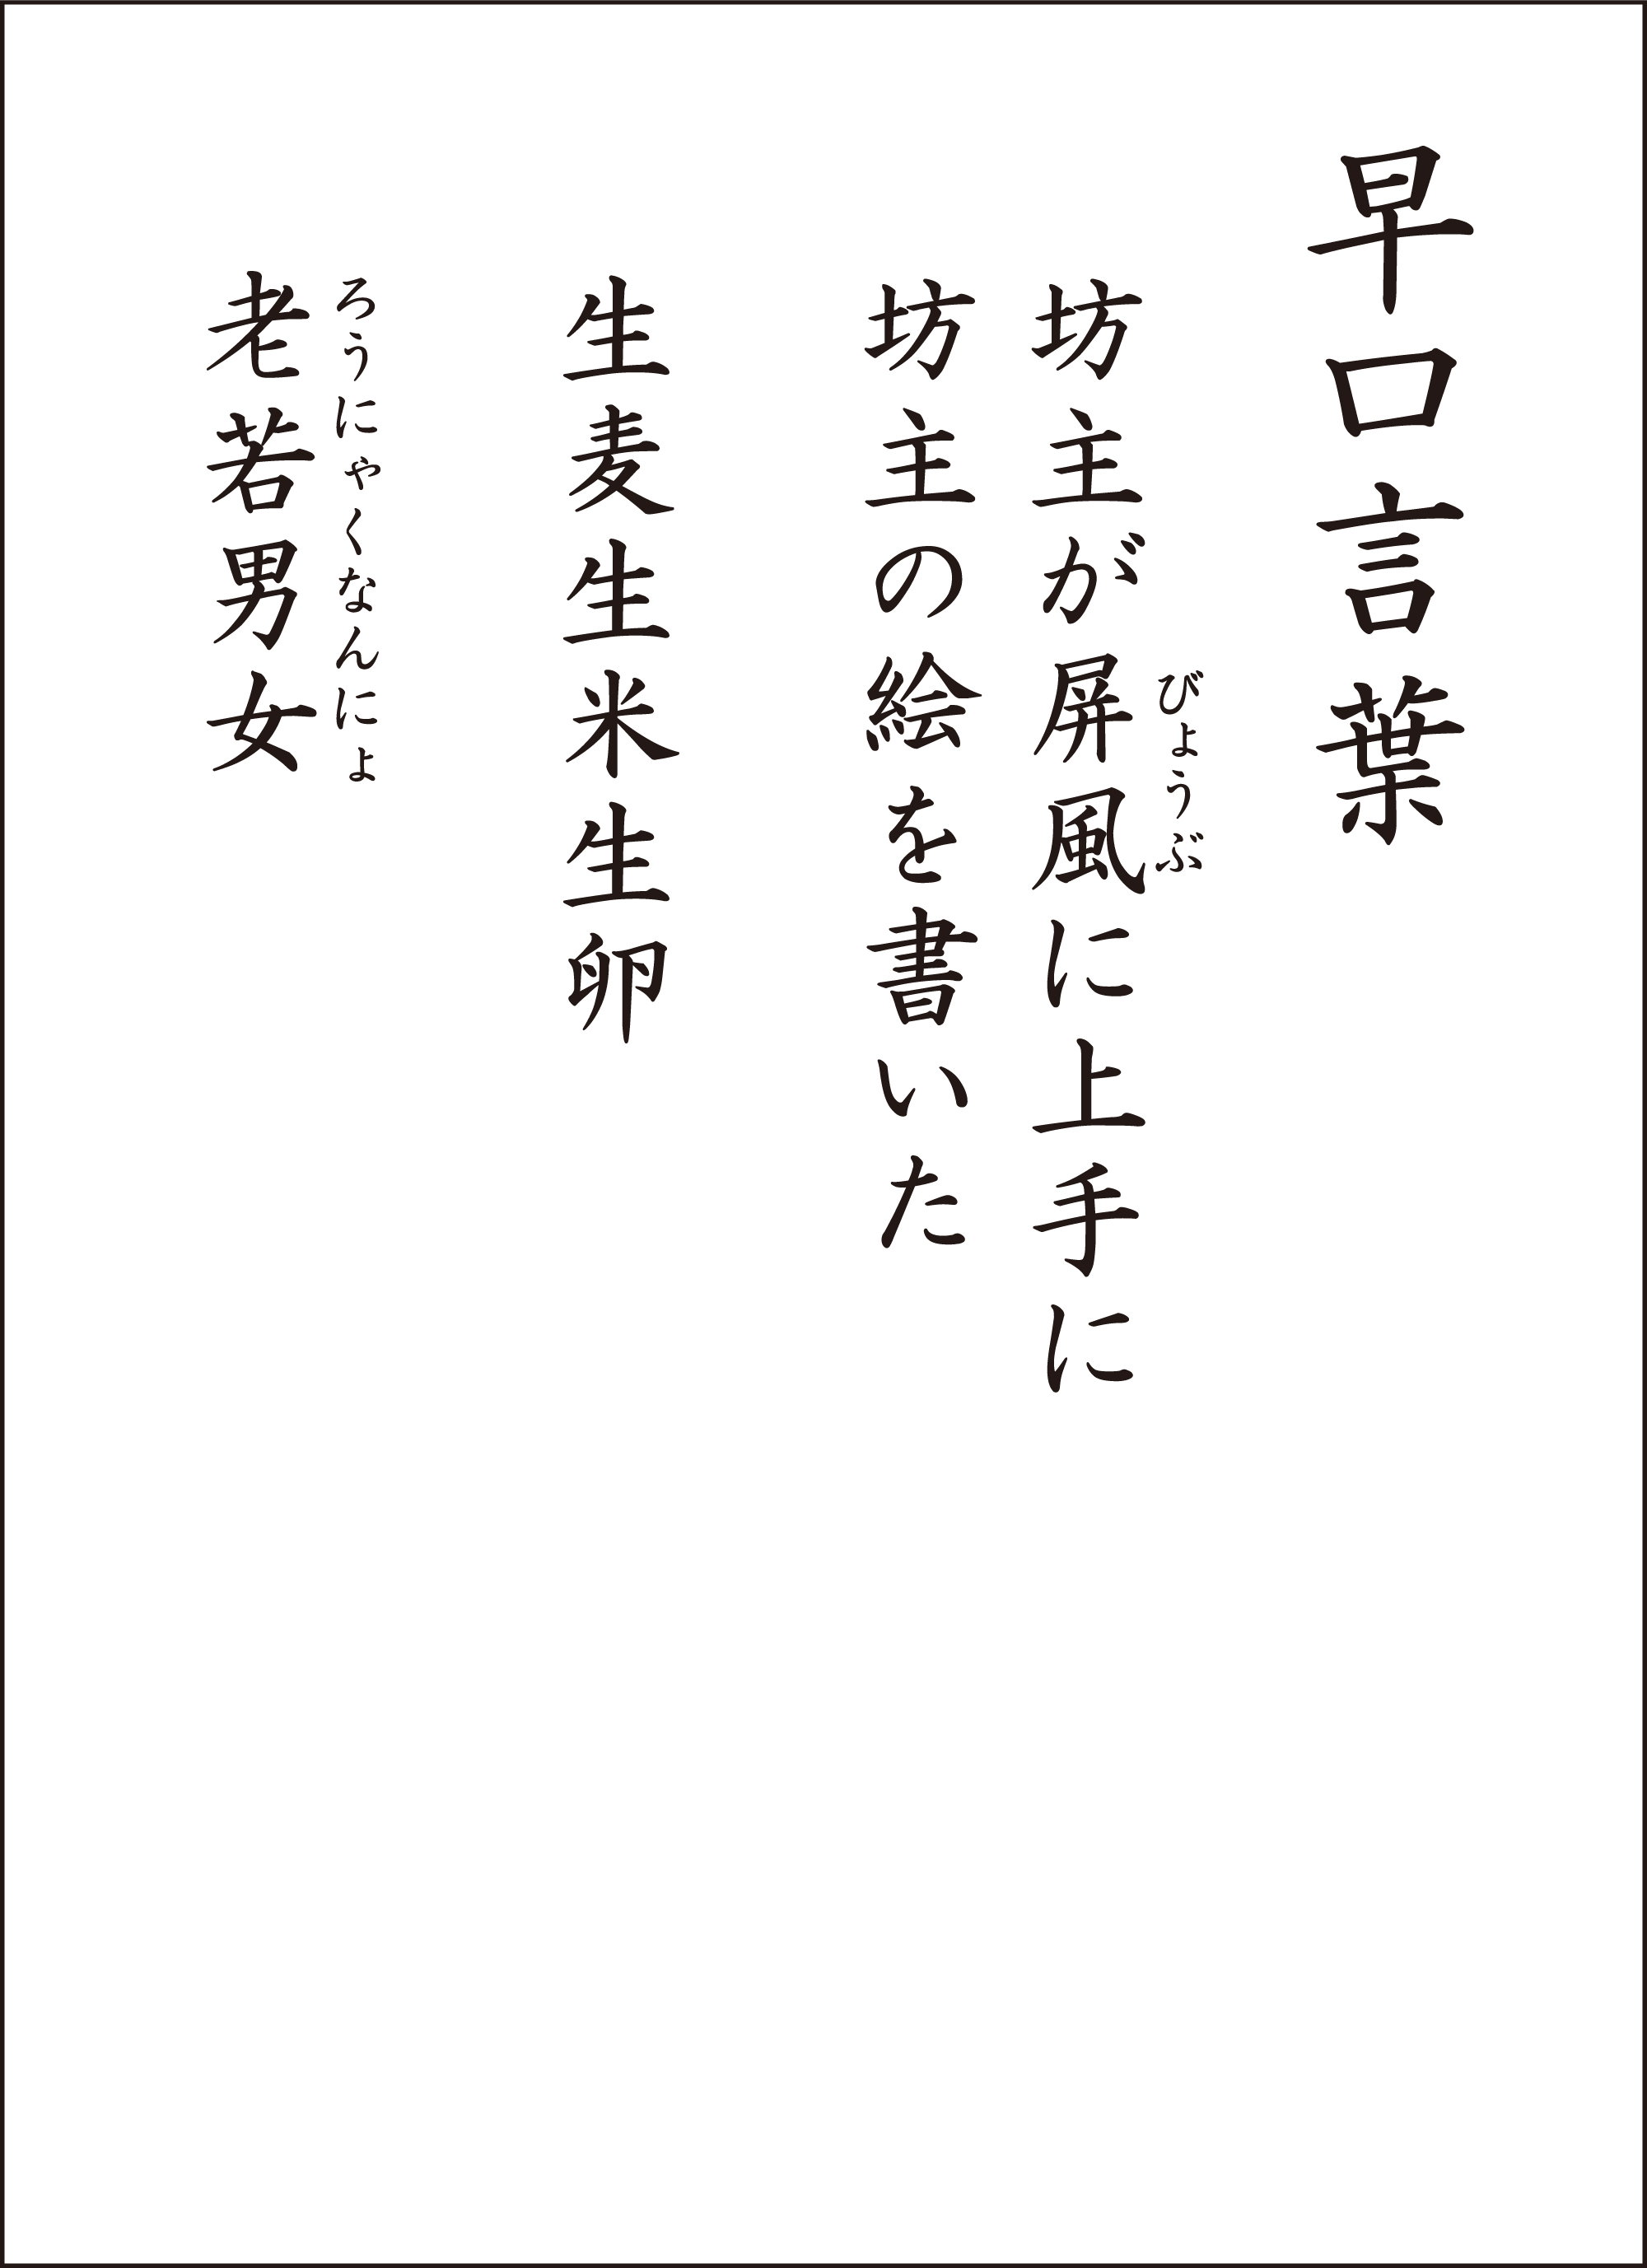 早口言葉
坊主が屏風に上手に
びょうぶ
坊主の絵を書いた
生麦生米生卵
老若男女
ろうにゃくなんにょ